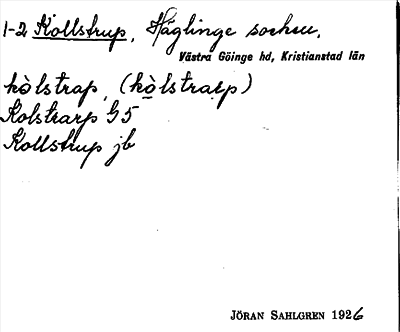 1-2 Kollstrup, Häglinge socken,
Västra Göinge hd, Kristianstad län
kòlstrap, (kò̲lstrarp)
Kolstrarp G5
Kollstrup jb
JÖRAN SAHLGREN 1926